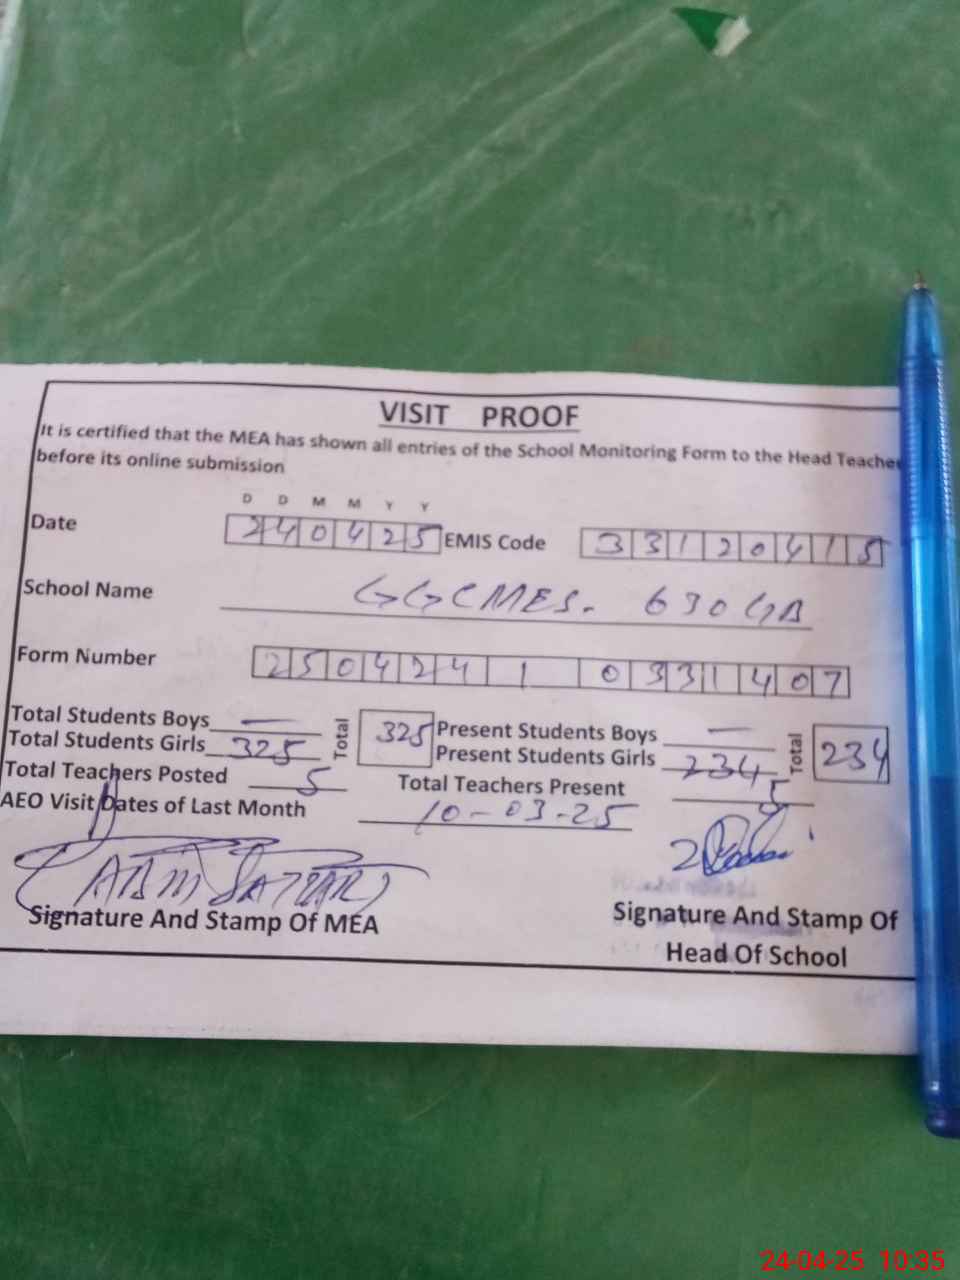 VISIT PROOF
It is certified that the MEA has shown all entries of the School Monitoring Form to the Head Teacher
before its online submission
D D M M Y Y
Date 240425 EMIS Code 33120415
School Name GGCMES. 630 GB
Form Number 250424 1 0331407
Total Students Boys — Total 325 Present Students Boys — Total 234
Total Students Girls 325 Present Students Girls 234
Total Teachers Posted 5 Total Teachers Present 5
AEO Visit Dates of Last Month 10-03-25
Signature And Stamp Of MEA
Signature And Stamp Of
Head Of School
24-04-25 10:35